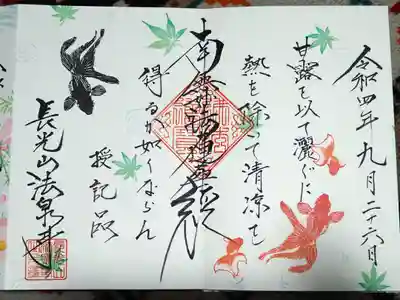 令和四年九月二十六日
甘露を以て灑ぐに
熱を除って清涼を
南無妙法蓮華経
得るが如くならん
授記品
長光山法泉寺